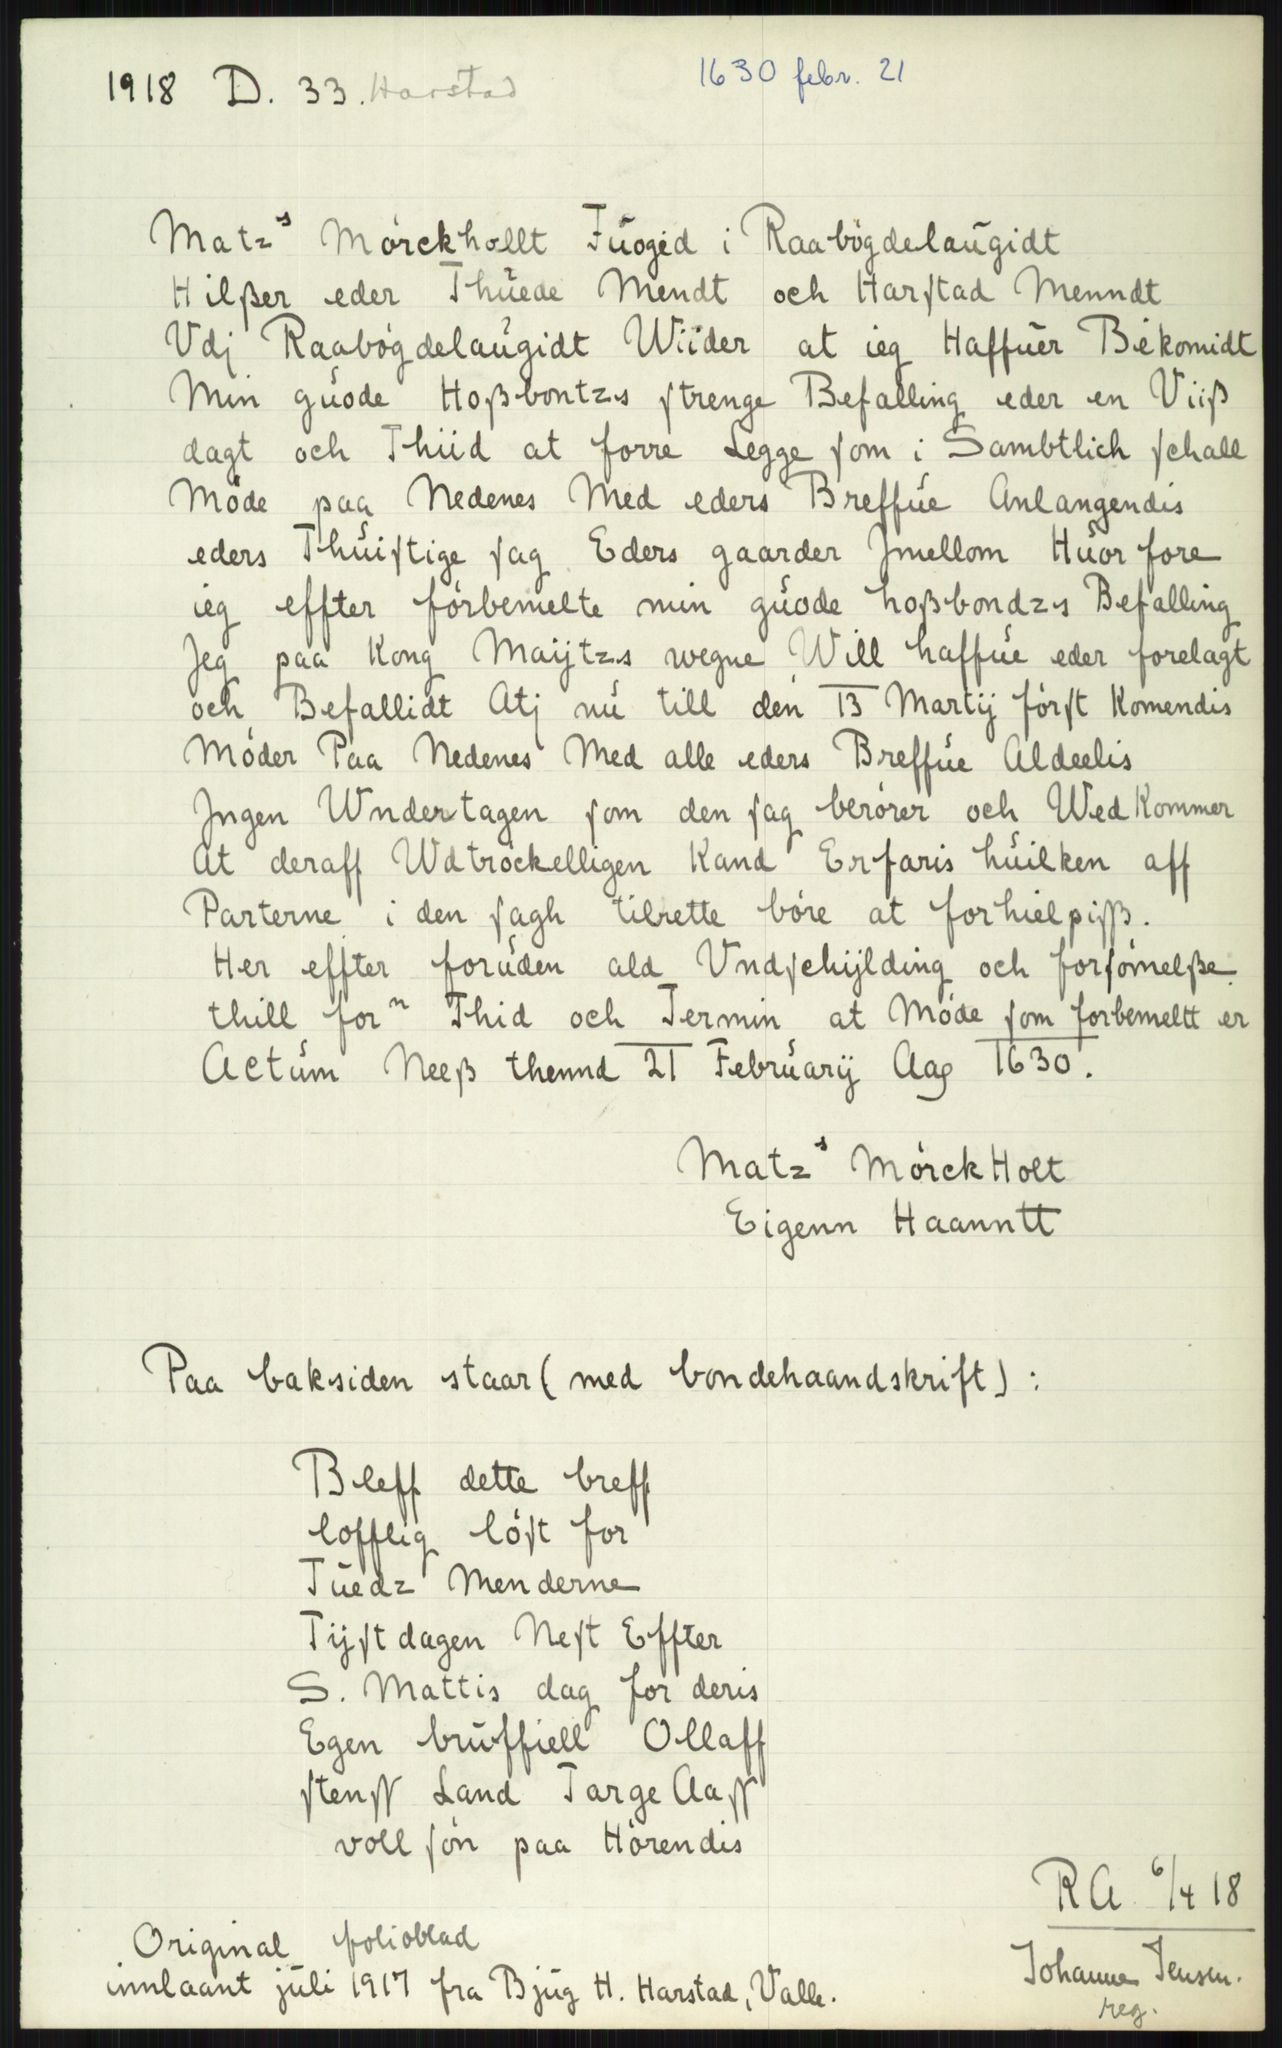 1918 D. 33. Harstad
1630 febr. 21
Matzˢ Mórckhollt Fuogid i Raabógdelaugidt
Hilßer eder Thuede Mendt och Harſtad Menndt
Vdj Raabógdelaugidt Wiider at ieg Haffuer Bekomidt
Min guode Hoßbontzs ſtrenge Befalling eder en Viiß
dagt och Thiid at forre Legge ſom i Sambtlich ſchall
Móde paa Nedenes Med eders Breffue Anlangendis
eders Thuiſtige ſag Eders gaarder Jmellom Huor fore
ieg effter fórbemelte min guode hoßbondzs Befalling
Jeg paa Kong Maijtzs wegne Will haffue eder forelagt
och Befallidt Atj nu till den 13 Martij fórſt Komendis
Móder Paa Nedenes Med alle eders Breffue Aldeelis
Jngen Wndertagen ſom den ſag berórer och WedKommer
At deraff Wdtróckelligen Kand Erfaris huilken aff
Parterne i den ſagh tilrette bóre at forhielpiſß.
Her effter foruden ald Vndſchijlding och forſómelße
thill forⁿ Thid och Termin at Móde ſom forbemeltt er
Actum Neeß thennd 21 Februarij Aag 1630.
Matzˢ MórckHolt
Eigenn Haanntt
Paa baksiden staar (med bondehaandskrift):
Bleff dette breff
lofflig lóſt for
Tuedz Menderne
Tijſtdagen Neſt Effter
S. Mattis dag for deris
Egen bruffiell Ollaff
ſtenſſ Land Targe Aaſſ
voll ſón paa Hórendis
RA 6/4 18
Original folioblad
innlaant juli 1917 fra Bjug H. Harstad, Valle.
Johanne Jensen.
reg.